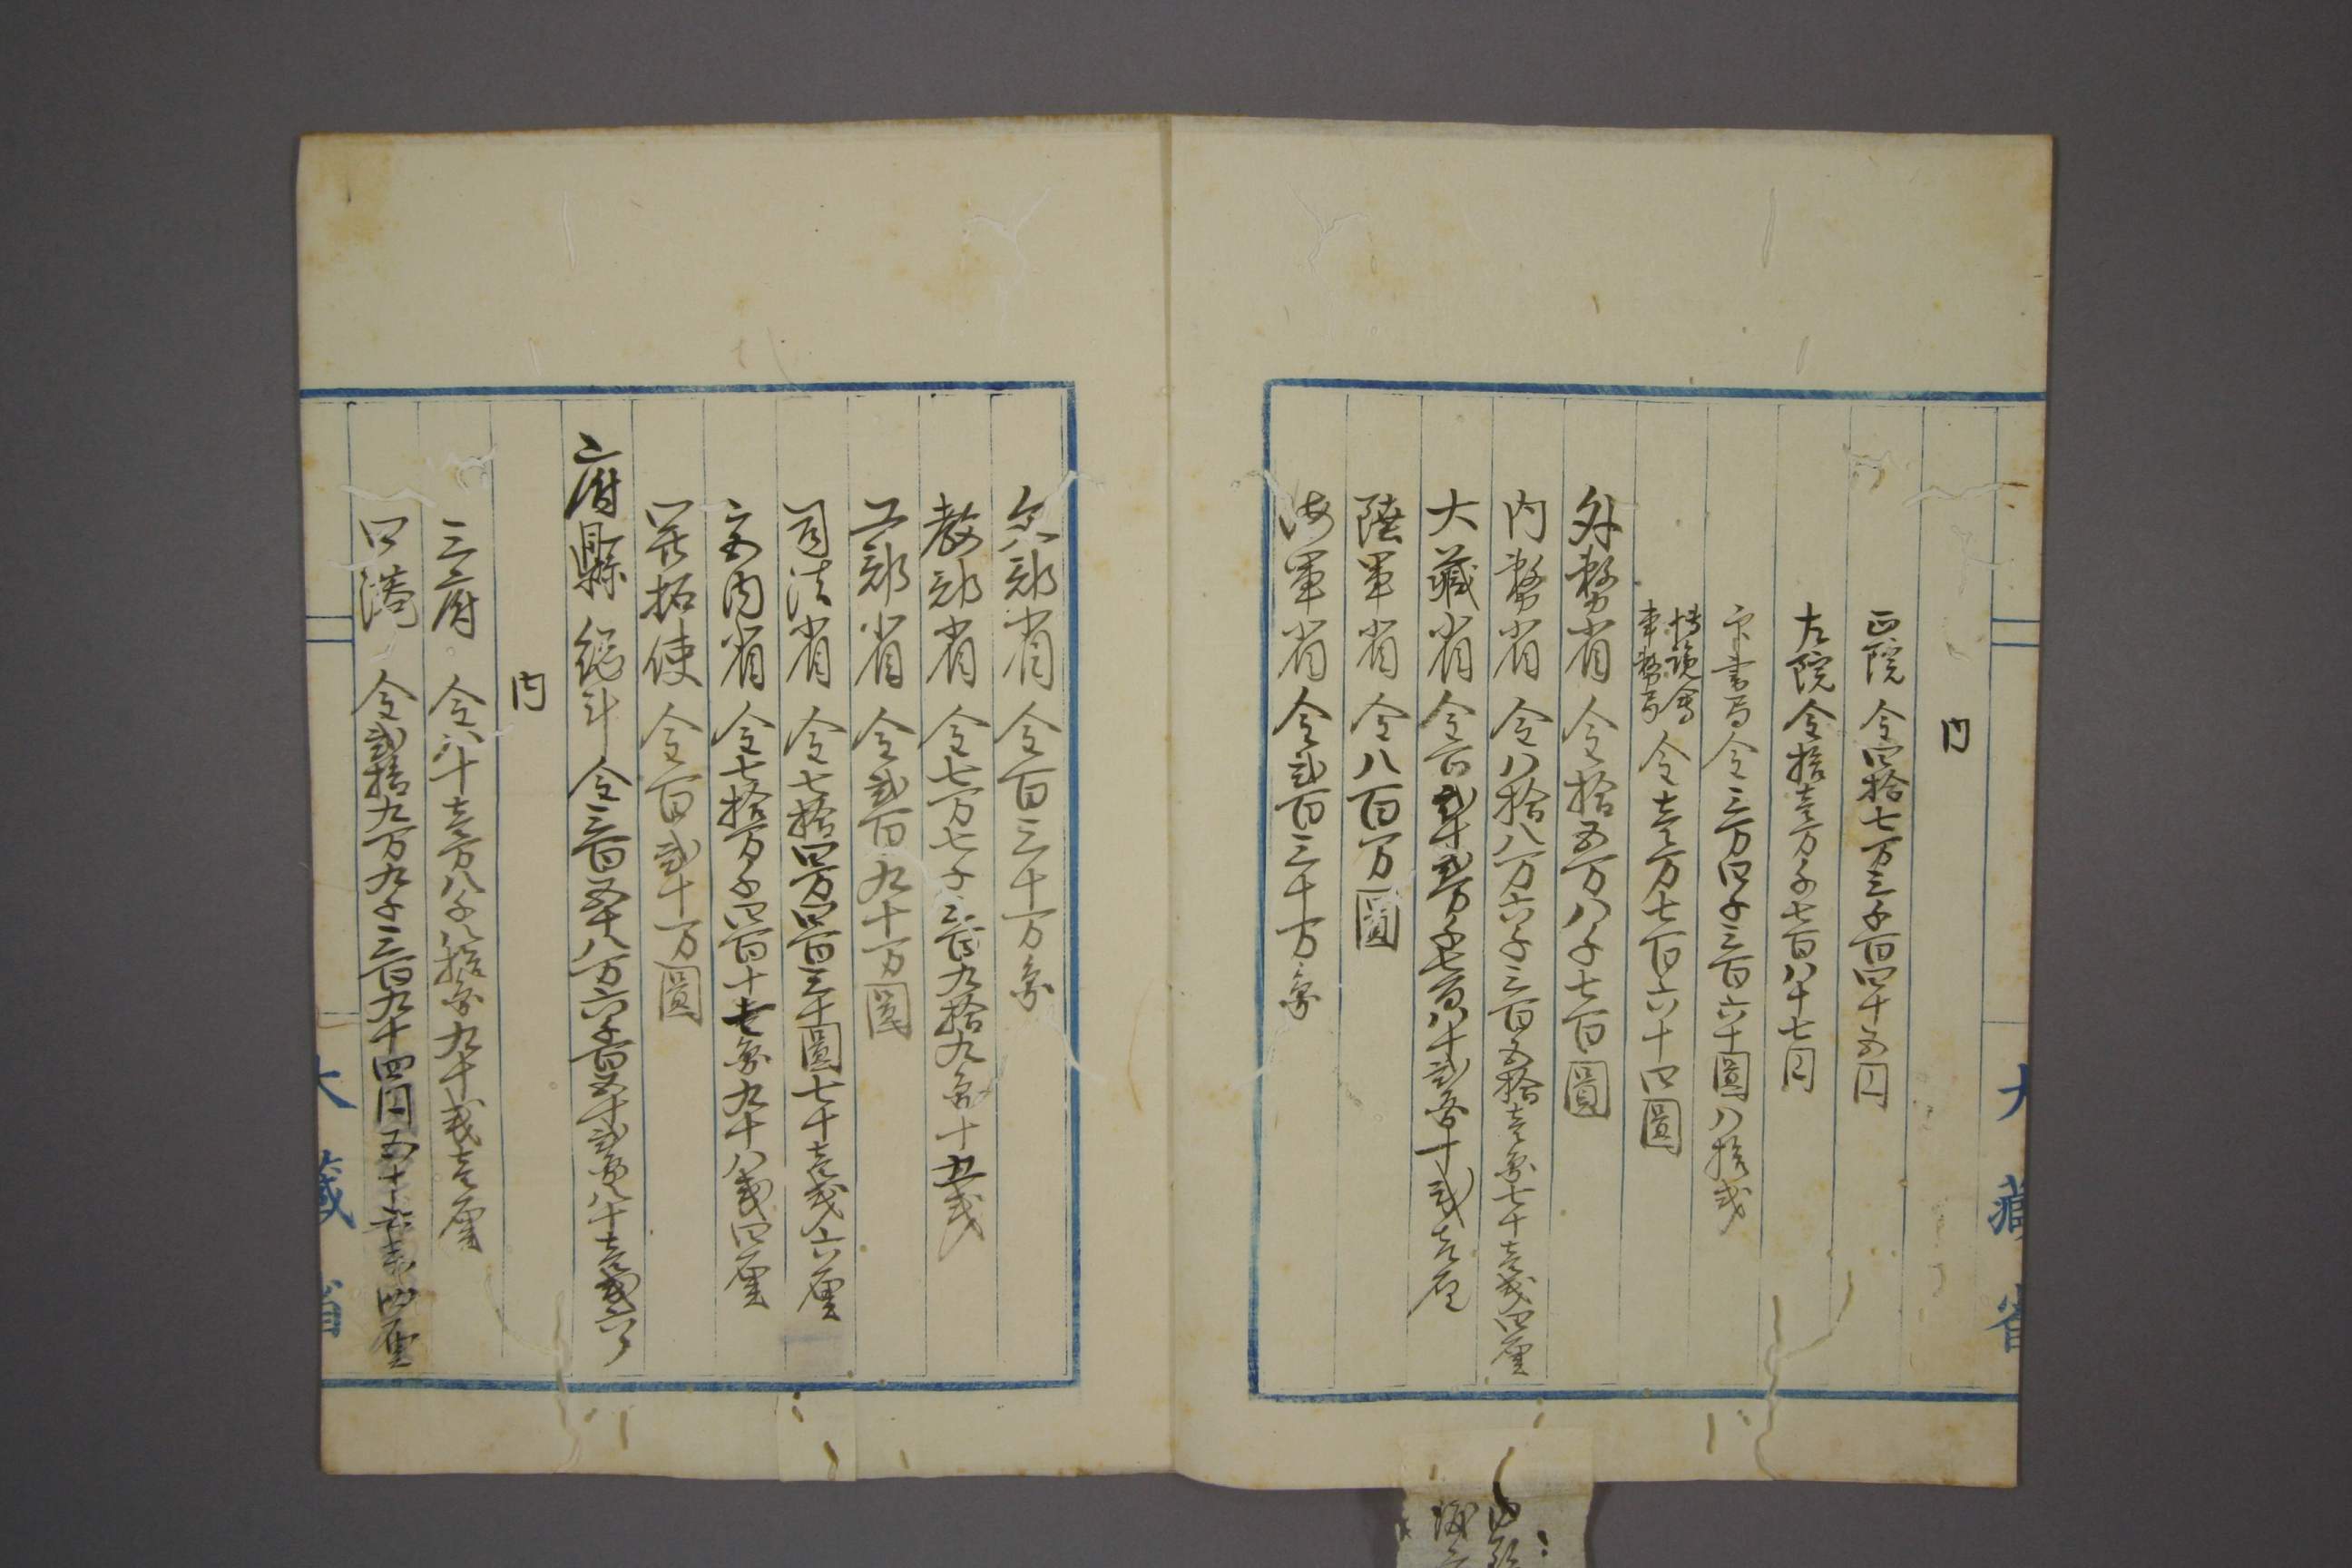 内
正院 金四拾七万三千百四十五円
左院 金拾壱万千七百八十七円
金三万四千三百六十圓八拾戔
博覧會事務局 金壱万七百六十四圓
外務省 金拾五万八千七百圓
内務省 金八拾八万六千三百五拾壱圓七十壱戔四厘
大藏省 金百弐十弐万千七百八十弐圓十弐戔壱厘
陸軍省 金八百万圓
海軍省 金弐百三十万圓
大藏省
文部省 金百三十万圓
教部省 金七万七千三百九拾九圓十五戔
工部省 金弐百九十万圓
司法省 金七拾四万四百三十圓七十壱戔六厘
宮内省 金七拾万千四百十七圓九十八戔四厘
開拓使 金百弐十万圓
府縣總計 金三百五十八万六千百五十弐圓八十壱戔六リ
内
三府 金八十壱万八千八拾圓九十戔壱厘
口港 金弐拾九万九千三百九十四円五十戔四厘
大藏省